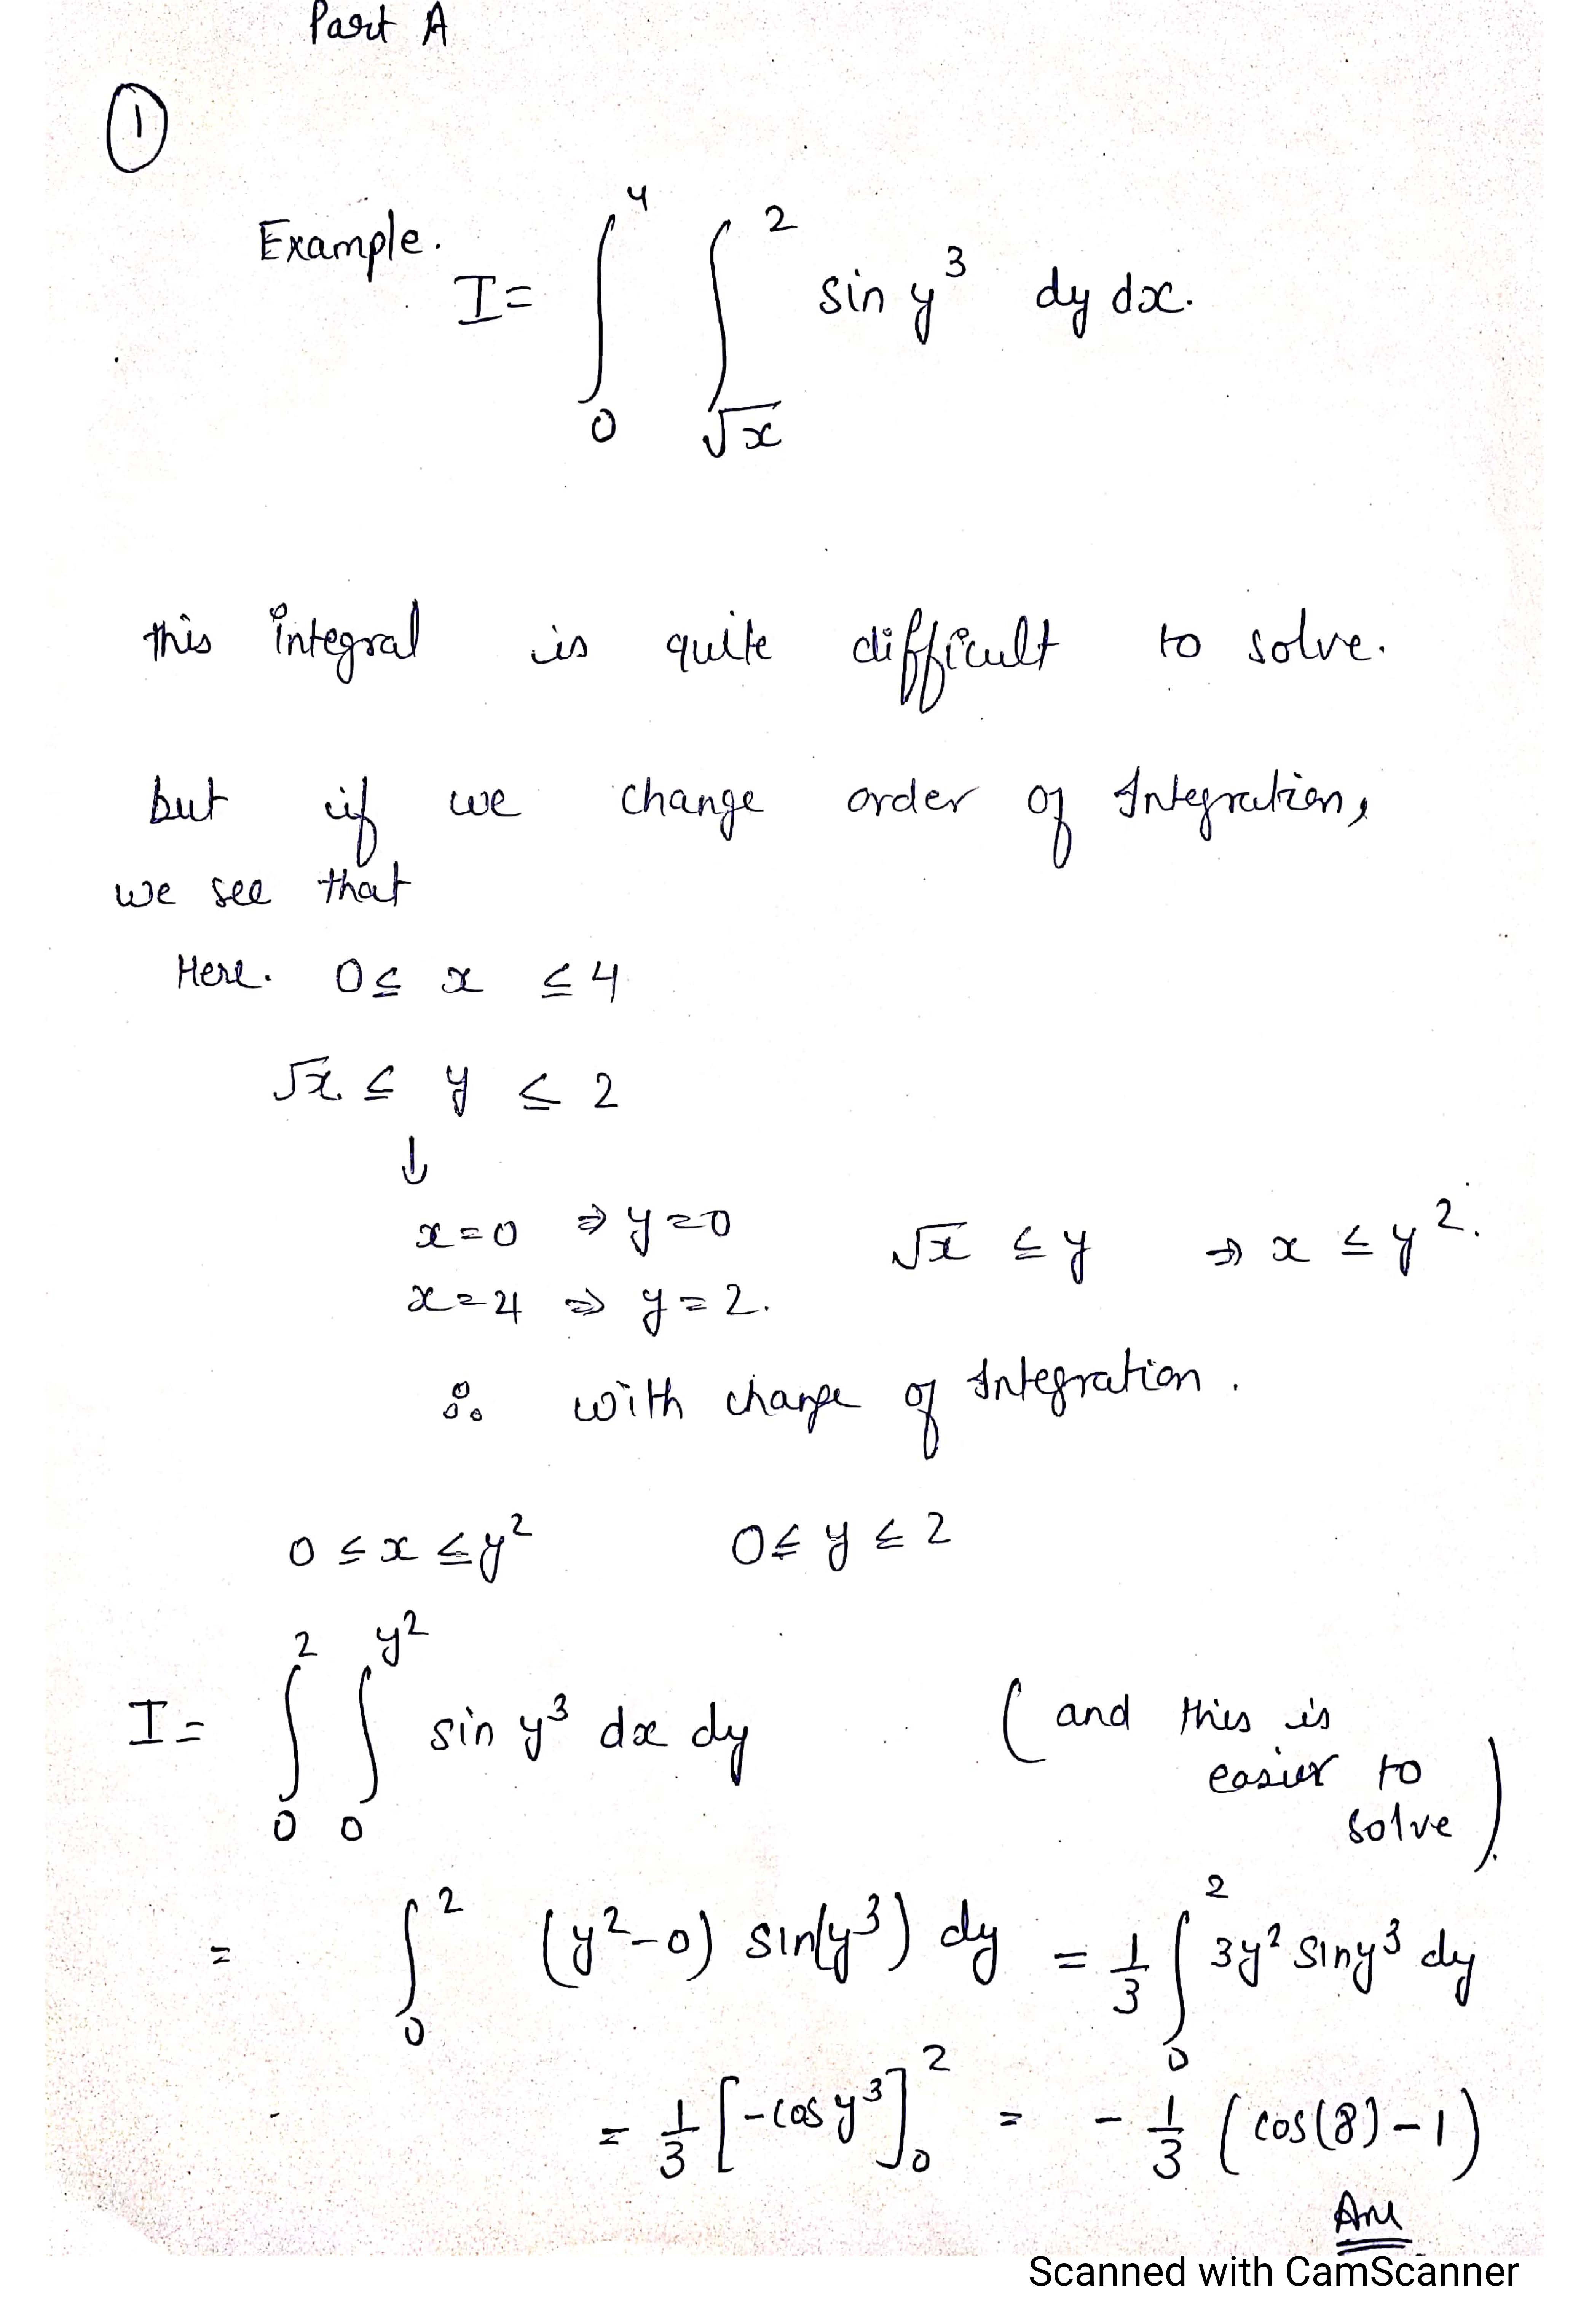 Part A
①
Example.
I = ∫₀⁴ ∫_√x² sin y³ dy dx.
this integral is quite difficult to solve.
but if we change order of Integration,
we see that
Here. 0 ≤ x ≤ 4
√x ≤ y ≤ 2
↓
x=0 ⇒ y=0 √x ≤ y ⇒ x ≤ y².
x=4 ⇒ y=2.
∴ with change of Integration.
0 ≤ x ≤ y² 0 ≤ y ≤ 2
I = ∫₀² ∫₀^y² sin y³ dx dy (and this is
easier to
solve)
= ∫₀² (y²-0) sin(y³) dy = 1/3 ∫₀² 3y² sin y³ dy
= 1/3 [-cos y³]₀² = - 1/3 (cos(8) - 1)
Ans
Scanned with CamScanner